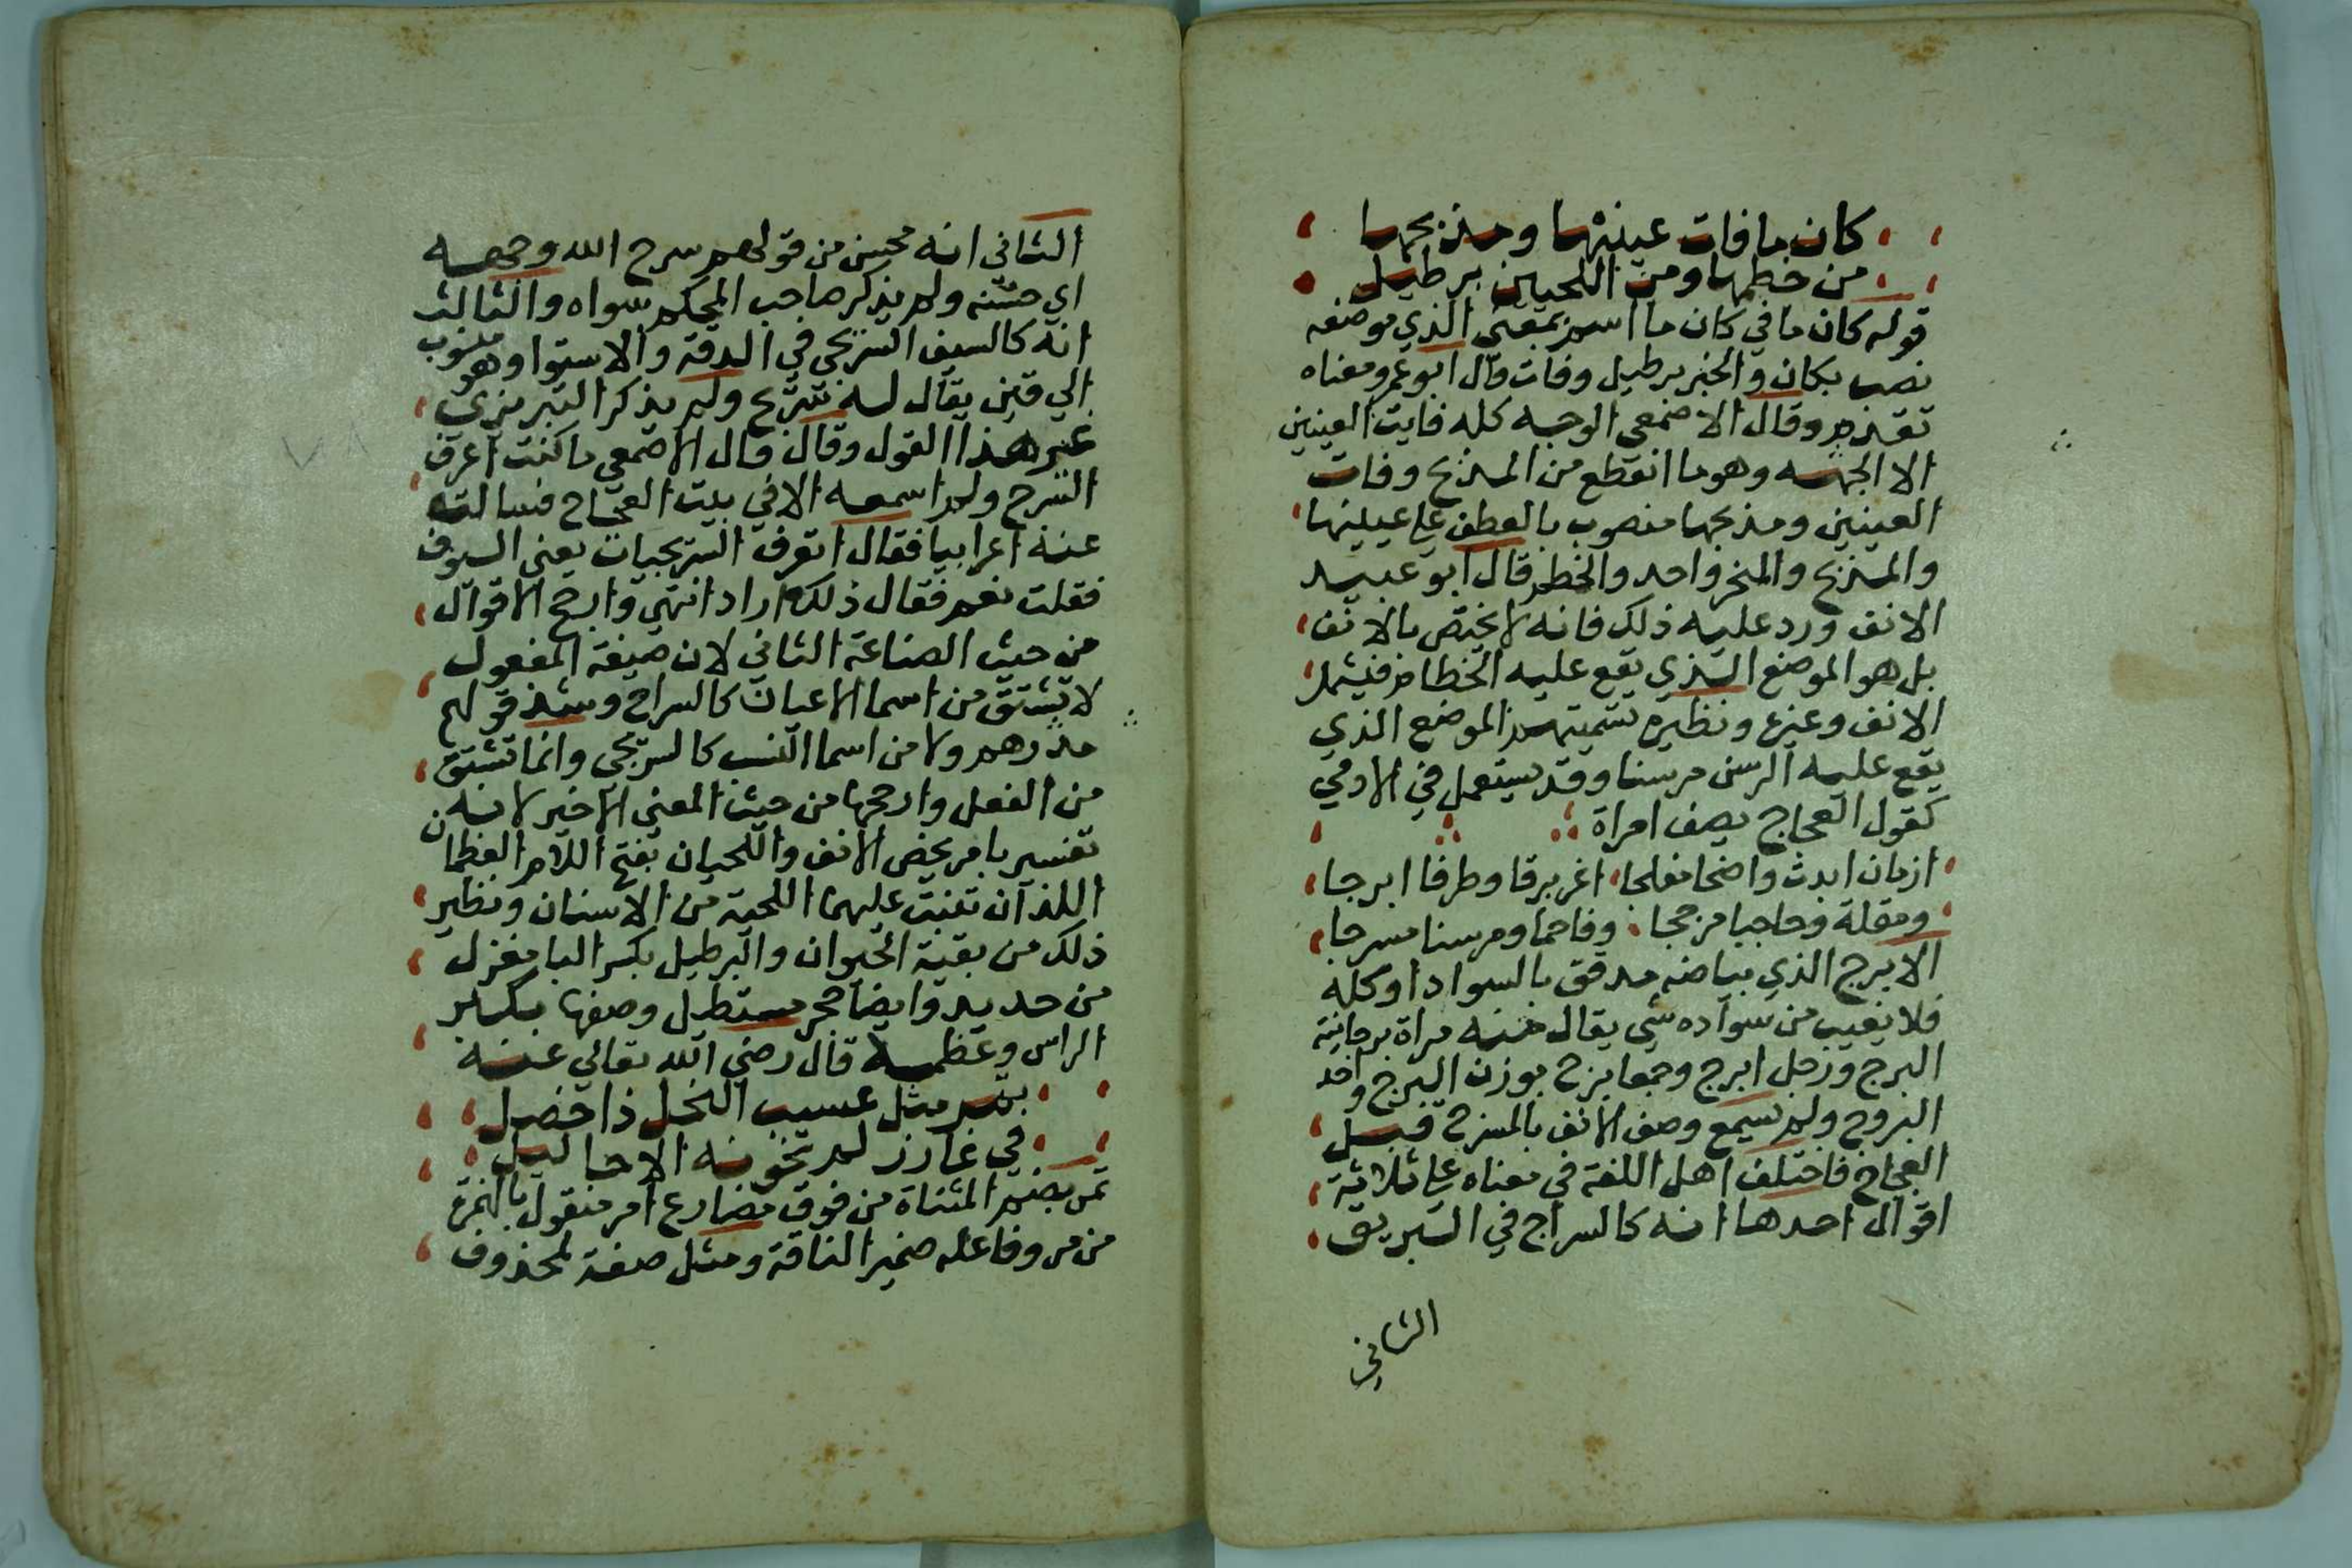 كان ما فات عينيها ومذبحها
من خطمها ومن اللحيين برطيل
قوله كان ما في كان ما اسم بمعني الذي موضعه
نصب بكان والخبر برطيل وفات قال ابو عمرو معناه
تقدم وقال الاصمعي الوجه كله فايت العينين
الا الجبهه وهو ما انقطع من المذبح وفات
العينين ومذبحها منصوب بالعطف علي عينيها
والمذبح والمنحر واحد والخطم قال ابو عبيد
الانف ورد عليه ذلك فانه لا يختص بالانف
بل هو الموضع الذي يقع عليه الخطام فيشمل
الانف وغيره ونظيره تسميتهم الموضع الذي
يقع عليه الرسن مرسنا وقد يستعمل في الادمي
كقول العجاج يصف امراة
ازمان ابدت واضحا مفلجا اغر برقا وطرفا ابرجا
ومقلة وحاجبا مزججا وفاحما ومرسنا مسرجا
الابرج الذي بياضه محدق بالسواد اوكله
فلا يغيب من سواده شي يقال منه مراة برجا بينة
البرج ورجل ابرج وجمعا برج بوزن البرج واحد
البروج ولم يسمع وصف الانف بالمسرج قبل
العجاج فاختلف اهل اللغة في معناه علي ثلاثة
اقوال احدها انه كالسراج في البريق
الثاني
الثاني انه محسن من قولهم سرج الله وجهه
اي حسنه ولم يذكر صاحب المحكم سواه والثالث
انه كالسيف السريجي في الدقة والاستوا وهو منسوب
الي قين يقال له سريج ولم يذكر التبريزي
غير هذا القول وقال قال الاصمعي ما كنت اعرف
السرج ولم اسمعه الا في بيت العجاج فسالت
عنه اعرابيا فقال اتعرف السريجيات يعني السيوف
فقلت نعم فقال ذلك اراد انتهي وارجح الاقوال
من حيث الصناعة الثاني لان صيغة المفعول
لا تشتق من اسما الاعيان كالسراج وشذ قولهم
مدرهم ولا من اسما النسب كالسريجي وانما تشتق
من الفعل وارجحها من حيث المعني الاخير لانه
تفسير بامر يخص الانف واللحيان بفتح اللام العظمان
اللذان تنبت عليهما اللحية من الانسان ونظير
ذلك من بقية الحيوان والبرطيل بكسر البا مغزل
من حديد وايضا حجر مستطيل وصفها بكبر
الراس وعظمه قال رضي الله تعالي عنه
تمر مثل عسيب النخل ذا خصل
في غارز لم تخونه الاحاليل
تمر بضم المثناة من فوق مضارع امر منقول بالهمزة
من مر وفاعله ضمير الناقة ومثل صفة لمحذوف